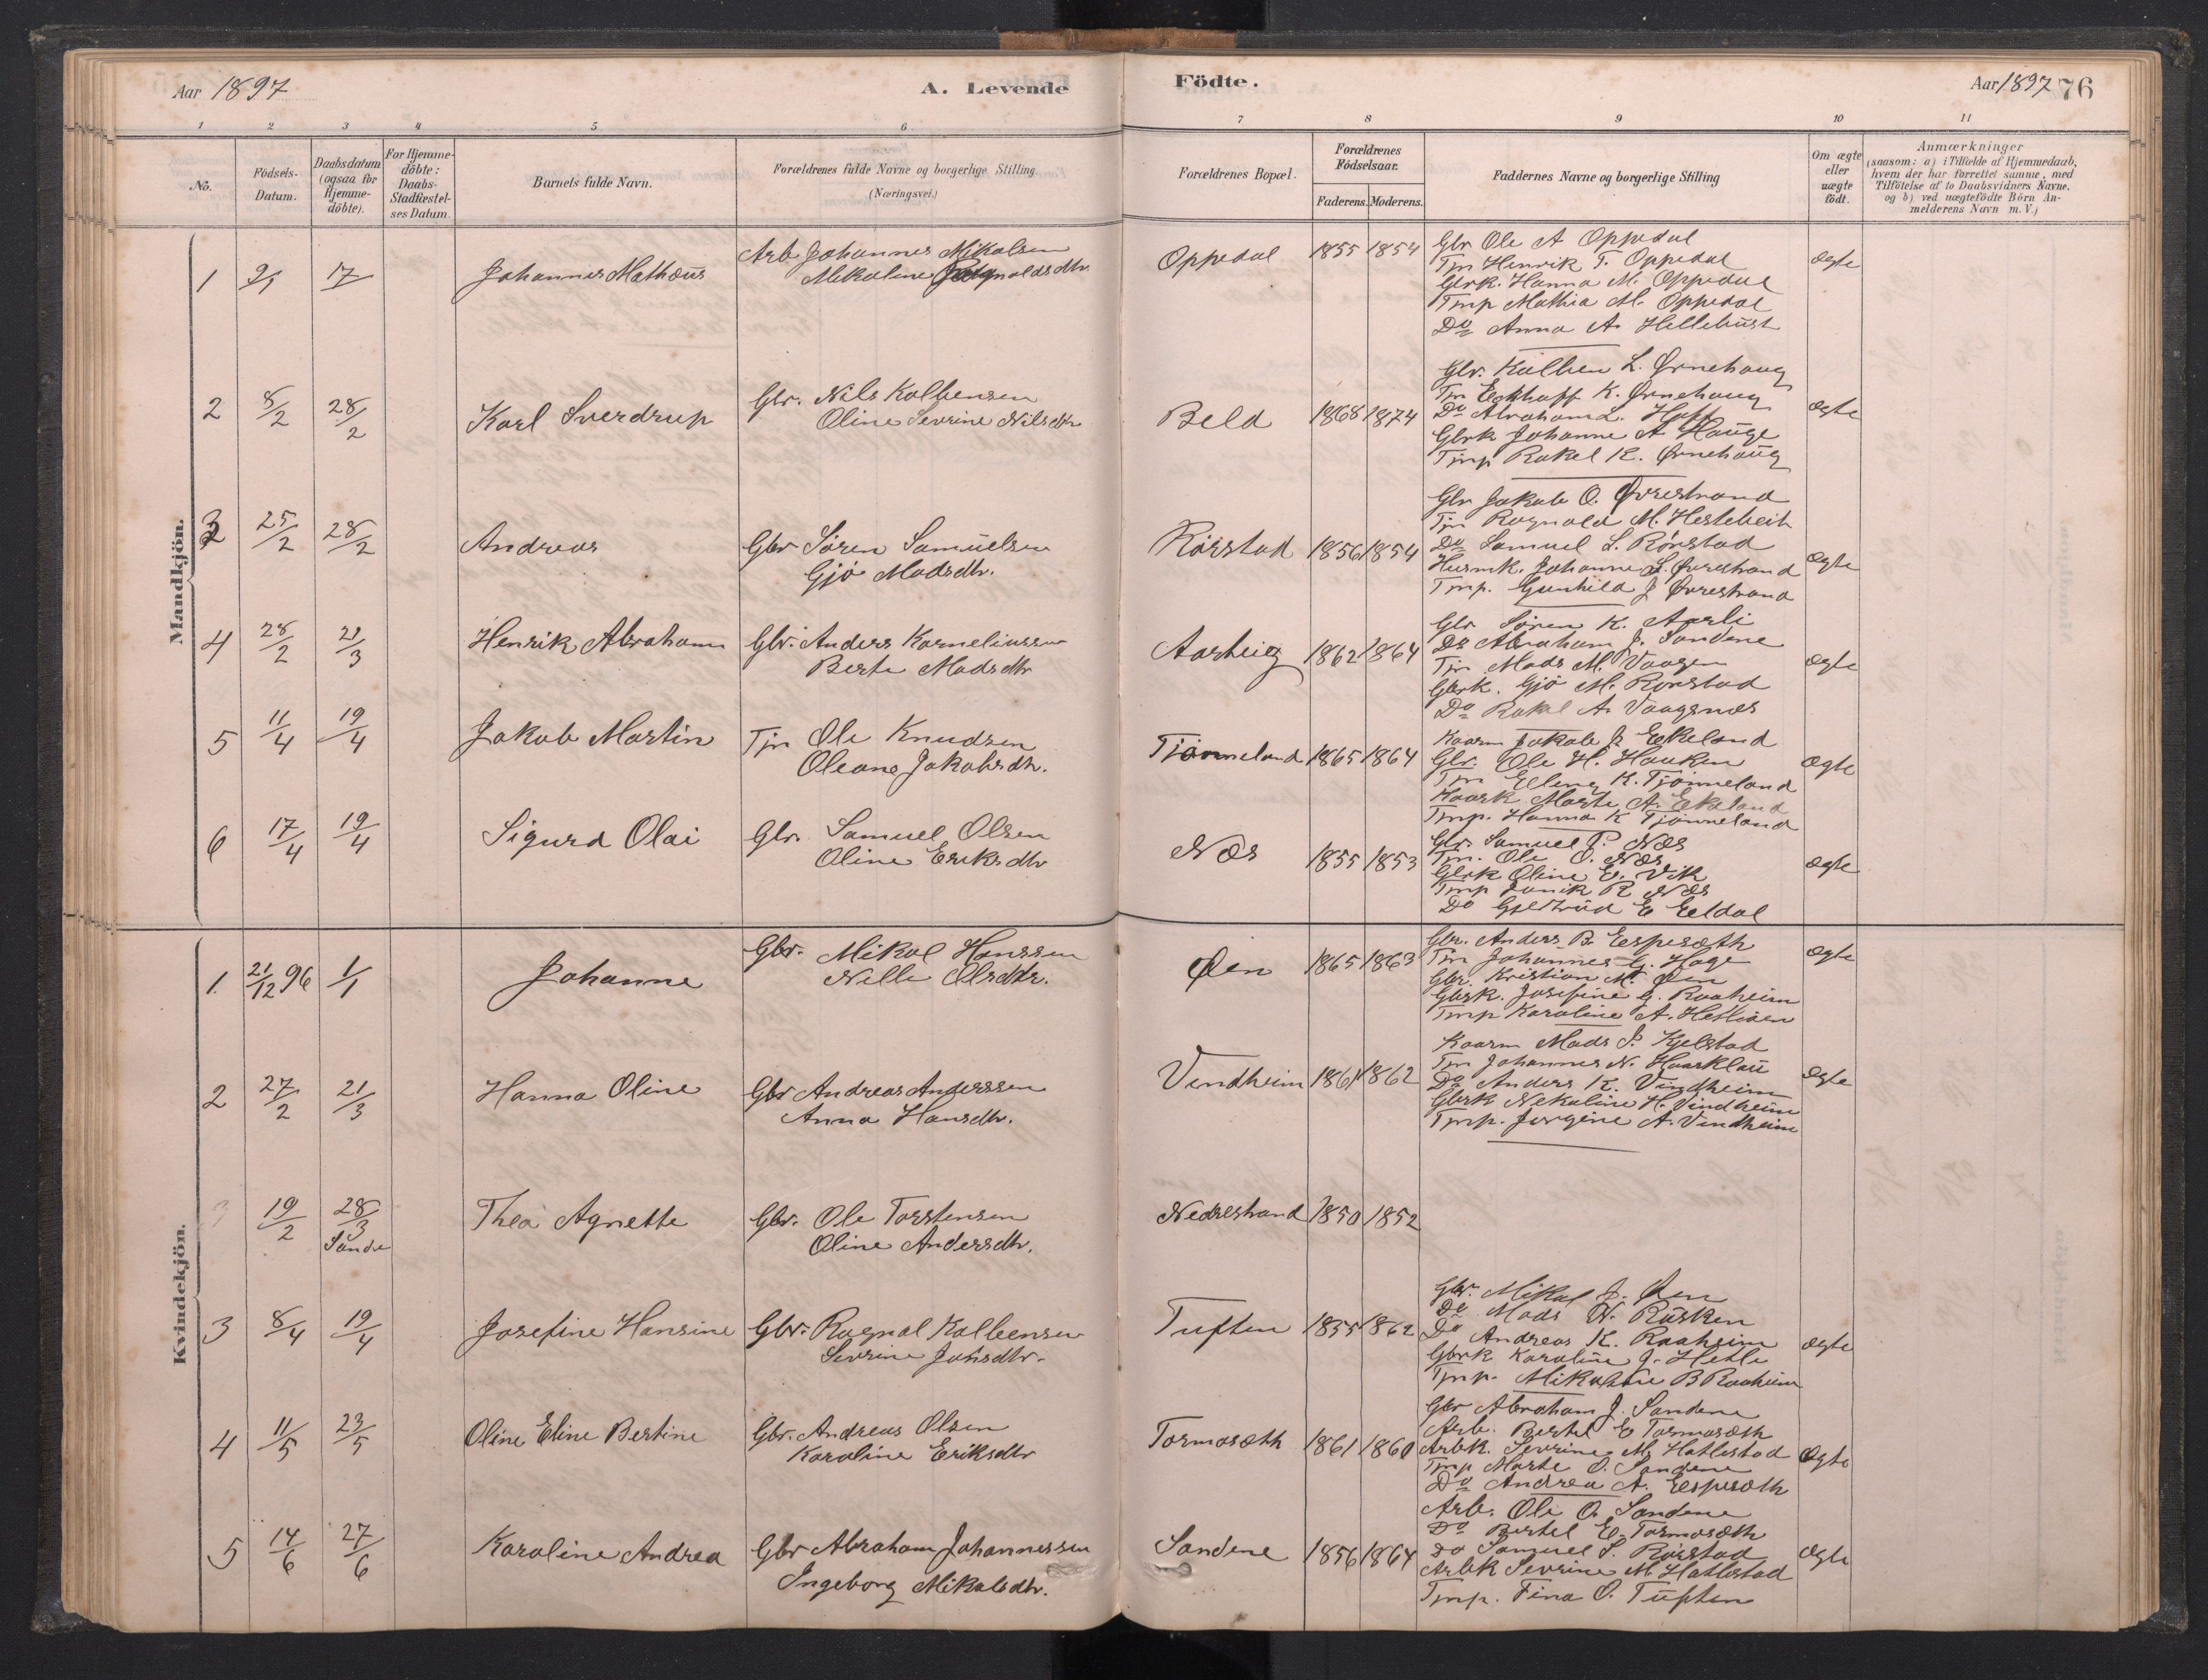 Aar 1897
A. Levende
Födte.
Aar 1897
76
1 2 3 4 5 6 7 8 9 10 11
No.
Födsels-
Datum.
Daabsdatum
(ogsaa for
Hjemme-
döbte).
For Hjemme-
döbte:
Daabs-
Stadfæstel-
ses Datum.
Barnets fulde Navn.
Forældrenes fulde Navne og borgerlige Stilling
(Næringsvei.)
Forældrenes Bopæl.
Forældrenes
Födselsaar.
Faderens. Moderens.
Faddernes Navne og borgerlige Stilling
Om ægte
eller
uægte
födt.
Anmærkninger
(saasom: a) i Tilfælde af Hjemmedaab,
hvem der har forrettet samme, med
Tilföielse af to Daabsvidners Navne.
og b) ved uægtefödte Börn An-
melderens Navn m. V.)
Mandkjön.
1 17/ Johannes Mathæus
Arb Johannes Mikalsen
Mikaline Ragnaldsdtr.
Oppedal 1855 1854
Gbr Ole A Oppedal
Tjn Henrik T. Oppedal
Gbrk. Hanna M. Oppedal
Tmp Mathia M. Oppedal
Do Anna A. Hellebust
ægte
2 8/2 28/2 Karl Sverdrup
Gbr. Nils Kolbensen
Oline Sevrine Nilsdtr
Beld 1868 1874
Gbr. Kolben L. Ørnehaug
Tjn Eckhoff K. Ørnehaug
Do Abraham L. Hoff
Gbrk Johanne A Hauge
Tmp Rakel K. Ørnehaug
ægte
3 25/2 28/2 Andreas
Gbr Søren Samuelsen
Gjø Madsdtr.
Rørstad 1856 1854
Gbr Jakob O. Øvrestrand
Tjn Ragnald M. Hesteheit
Do Samuel S. Rørstad
Husmk. Johanne S. Øvrestrand
Tmp. Gunhild J Øvrestrand
ægte
4 28/2 21/3 Henrik Abraham
Gbr. Anders Korneliussen
Berte Madsdtr
Aarbeig 1862 1864
Gbr Søren K. Aarli
Do Abraham J. Sandene
Tjn Mads M. Vaagen
Gbrk. Gjø M. Rørstad
Do Rakel A. Vaagsnæs
ægte
5 11/4 19/4 Jakob Martin
Tjn Ole Knudsen
Oleane Jakobsdtr.
Tjønneland 1865 1864
Kaarm Jakob J. Eekeland
Gbr. Ole H. Hauken
Tjn Elling K. Tjønneland
Kaark Marte A. Eekeland
Tmp. Hanna K Tjønneland
ægte
6 17/4 19/4 Sigurd Olai
Gbr. Samuel Olsen
Oline Eriksdtr
Næs 1855 1853
Gbr Samuel P. Næs
Tjn. Ole O. Næs
Gbrk Oline E. Vik
Tmp Janik R Næs
Do Gjertrud E Eeldal
ægte
Kvindekjön.
1. 21/12 96 1/1 Johanne
Gbr. Mikal Hanssen
Nille Olsdtr.
Øen 1865 1863
Gbr. Anders B. Eespesæth
Tjn Johannes G. Hage
Gbr. Kristian M. Øen
Gbrk. Josefine G. Raaheim
Tmp Karoline A. Hetleøen
ægte
2 27/2 21/3 Hanna Oline
Gbr Andreas Anderssen
Anna Hansdtr.
Vindheim 1861 1862
Kaarm Mads P. Kjelstad
Tjn Johannes N. Haarklau
Do Anders K. Vindheim
Gbrk Nekoline H. Vindheim
Tmp. Jørgine A. Vindheim
ægte
3 19/2 28/3 Thea Agnette
Sande
Gbr. Ole Torstensen
Oline Andersdtr.
Nedrestrand 1850 1852
3 8/4 19/4 Josefine Hansine
Gbr. Ragnal Kolbensen
Sevrine Johsdtr.
Tuften 1855 1862
Gbr. Mikal J. Øen
Do Mads N. Rusken
Do Andreas K. Raaheim
Gbrk Karoline J. Hetle
Tmp. Mikaline B Raaheim
ægte
4 11/5 23/5 Oline Eline Bertine
Gbr. Andreas Olsen
Karoline Eriksdtr
Tormosæth 1861 1860
Gbr Abraham J. Sandene
Arb. Bertel E Tormosæth
Arbk. Sevrine M. Hatlestad
Tmp Marte O. Sandene
Do Andrea A. Eespesæth
ægte
5 14/6 27/6 Karoline Andrea
Gbr Abraham Johannessen
Ingeborg Mikalsdtr.
Sandene 1856 1864
Arb. Ole O. Sandene
Do Bertel E. Tormosæth
Do Samuel S. Rørstad
Arbk Sevrine M. Hatlestad
Tmp. Fina O. Tuften
ægte